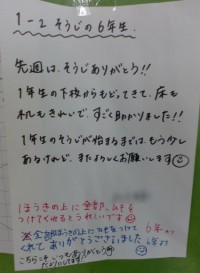 1－2 そうじの6年生.
先週は、そうじありがとう!!
1年生の下校からもどってきて、床も
机もきれいで、すごく助かりました!!
1年生のそうじが始まるまでは、もう少し
あるけれど、またよろしくお願いします
ほうきの上に全部、ひもを
つけてくれるとうれしいです
※全部ほうきの上にひもをつけて 6年より
くれて ありがとうございました 6年より
こちらこそいつもありがとう